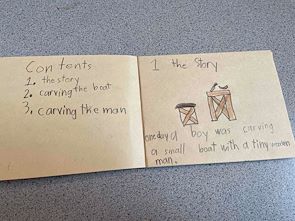 Contents
1. the story
2. carving the boat
3. carving the man
1 the Story
one day a boy was carving
a small boat with a tiny wooden
man.